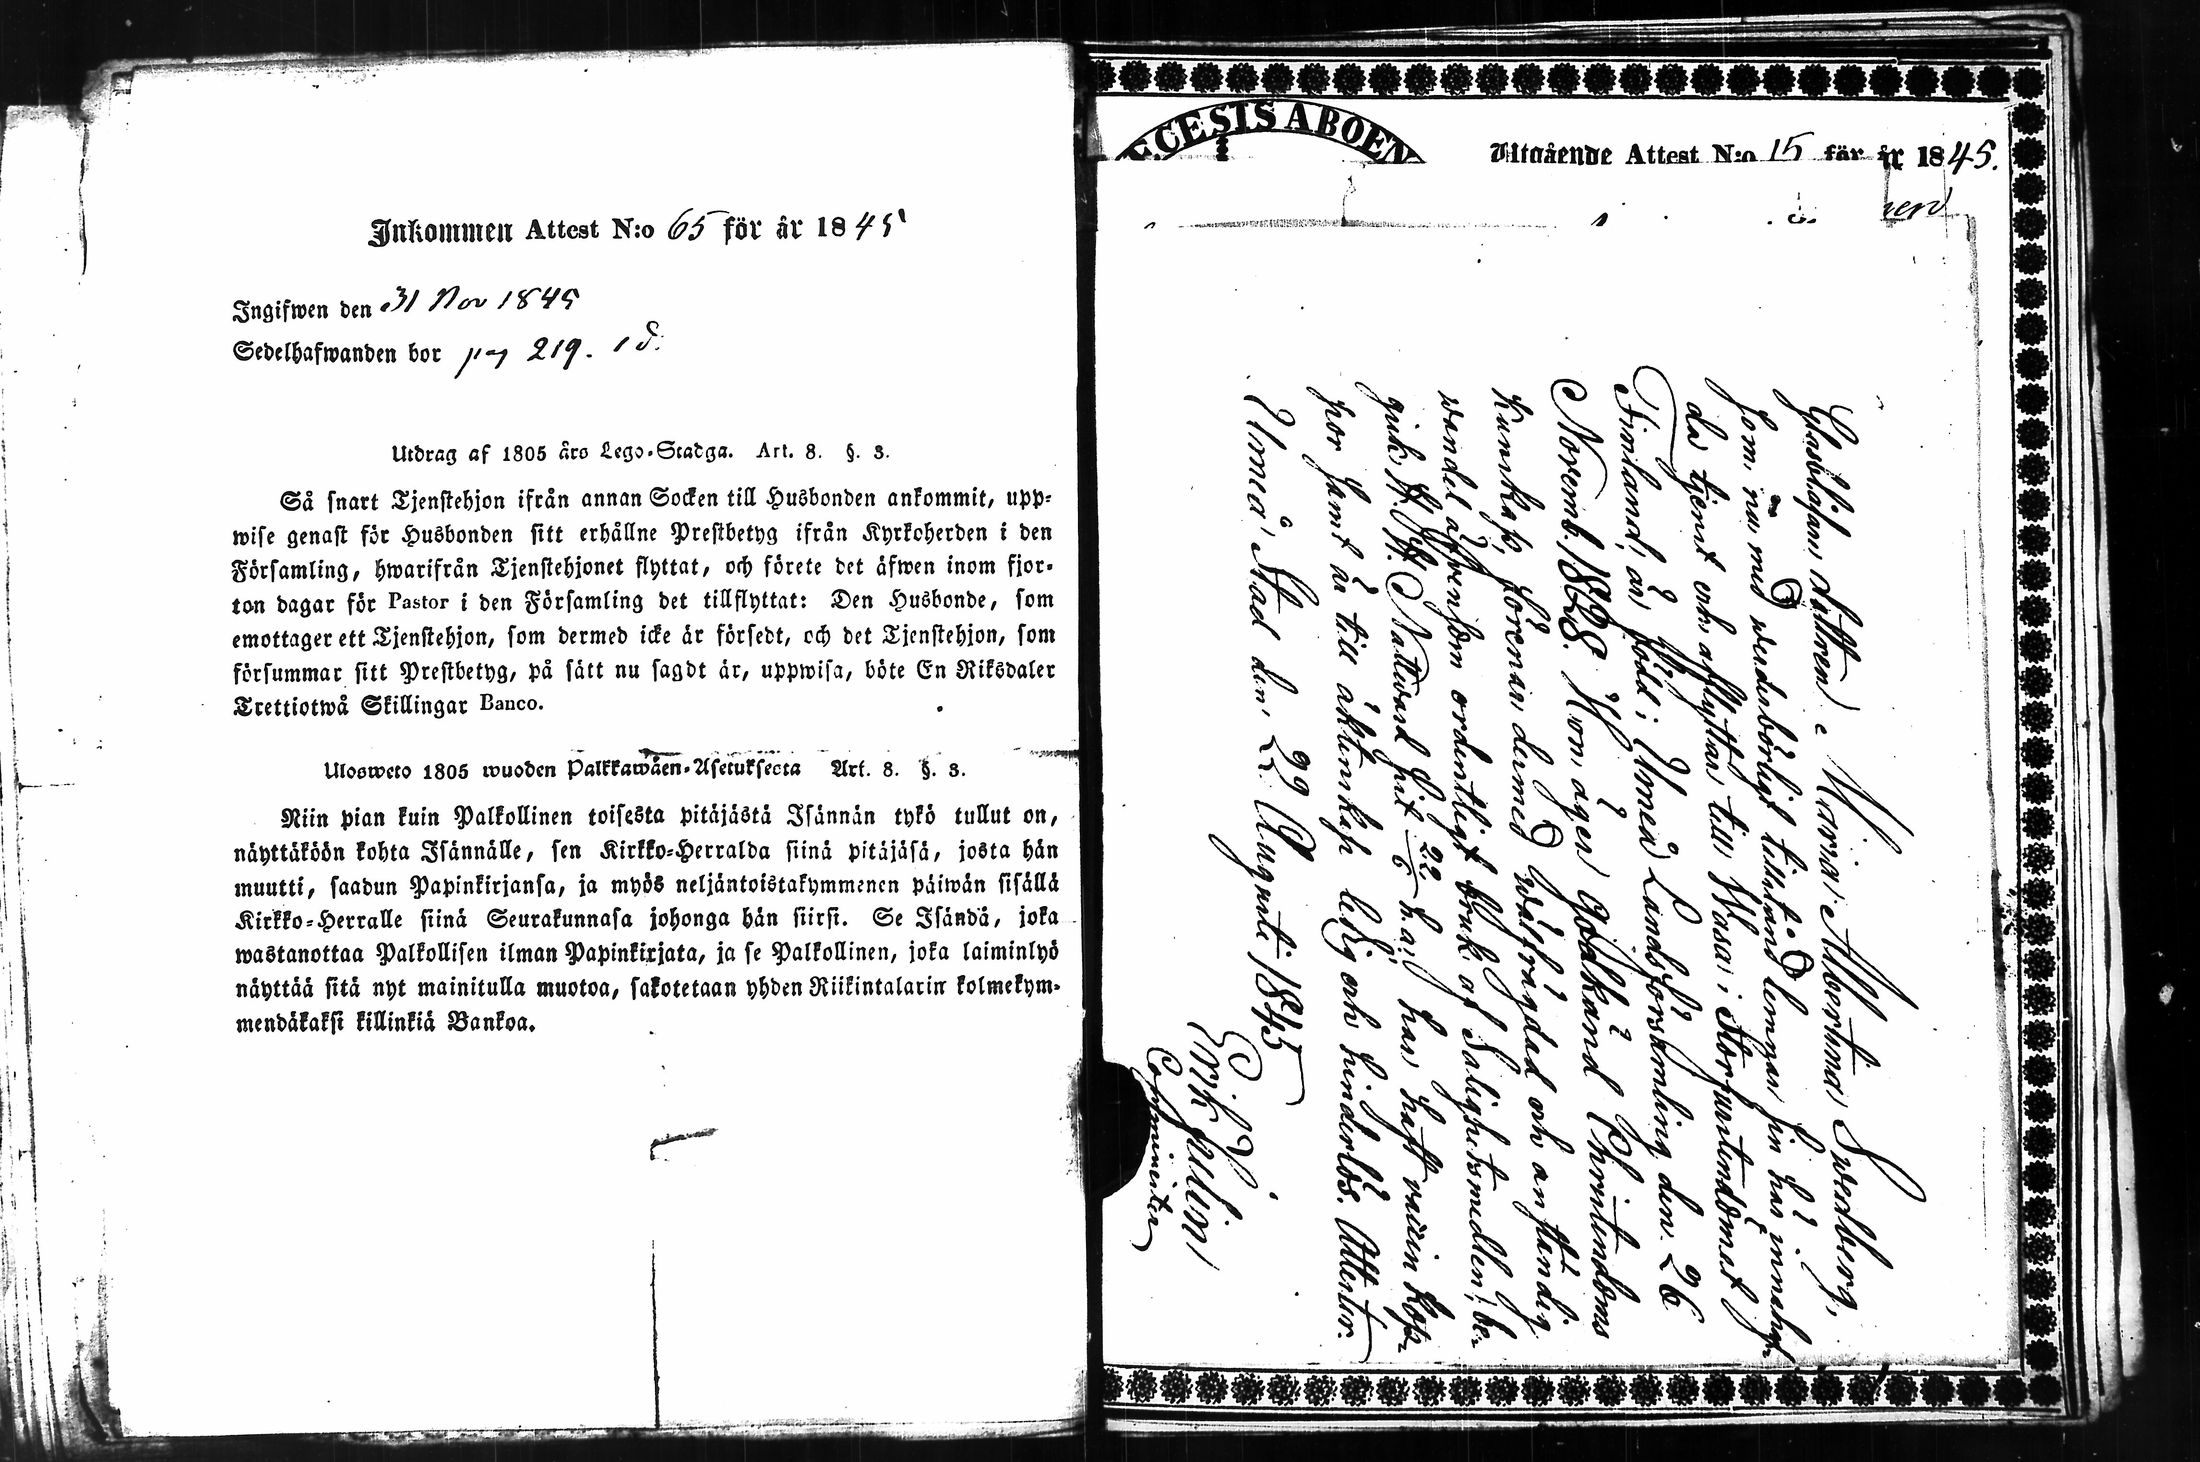 Inkommen Attest N:o 65 för år 1845
Ingifwen den 31 Nov 1845
Sedelhafwanden bor pag 219.
Utdrag af 1805 års Lego-Stadga. Art. 8. §. 3.
Så snart Tjenstehjon ifrån annan Socken till Husbonden ankommit, upp-
wise genast för Husbonden sitt erhållne Prestbetyg ifrån Kyrkoherden i den
Församling, hwarifrån Tjenstehjonet flyttat, och förete det äfwen inom fjor-
ton dagar för Pastor i den Församling det tillflyttat: Den Husbonde, som
emottager ett Tjenstehjon, som dermed icke är försedt, och det Tjenstehjon, som
försummar sitt Prestbetyg, på sätt nu sagdt är, uppwisa, böte En Riksdaler
Trettiotwå Skillingar Banco.
Ulosweto 1805 wuoden Palkkawäen-Asetuksesta Art. 8. §. 3.
Niin pian kuin Palkollinen toisesta pitäjästä Isännän tykö tullut on,
näyttäköön kohta Isännälle, sen Kirkko-Herralda siinä pitäjäsä, josta hän
muutti, saadun Papinkirjansa, ja myös neljäntoistakymmenen päiwän sisällä
Kirkko-Herralle siinä Seurakunnasa johonga hän siirsi. Se Isändä, joka
wastanottaa Palkollisen ilman Papinkirjata, ja se Palkollinen, joka laiminlyö
näyttää sitä nyt mainitulla muotoa, sakotetaan yhden Riikintalarin kolmekym-
mendäkaksi killinkiä Bankoa.
ECESIS ABOEN
Utgående Attest N:o 15 för år 1845.
Glasblåsare dottren Maria Albertina Swedberg,
som nu med wederbörligt tillstånd lemnar sin här innehaf-
da tjenst och afflyttar till Wasa i Storfurstendömet
Finland, är född i Umeå Landsförsamling den 26
Novemb. 1828. Hon äger godkänd Christendoms
kunskap, förenar dermed wälfrägdad och anständig
wandel äfwensom ordentligt bruk af Salighetsmedlen; be-
gick H. H. Nattward sist 22/6 h. a; har haft vaccin kop-
por samt är till äktenskap ledig och hinderlös. Attesterar.
Umeå Stad den 29 Augusti 1845
Erik Hullin
Comminister